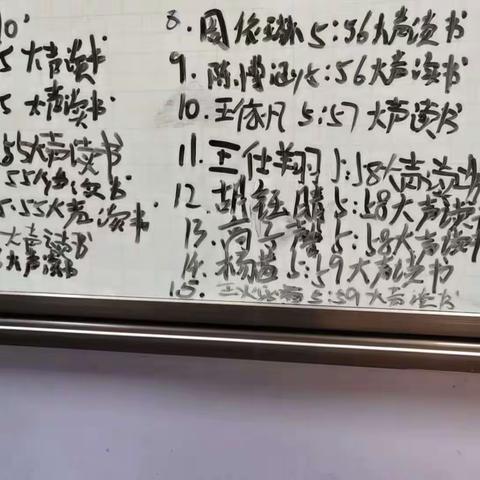 10'
5 大声读书
5 大声读书
55大声读书
55 读书
5:55大声读书
大声读书
大声读书
8. 周依 5:56大声读书
9. 陈博涵 5:56大声读书
10. 王依凡 5:57 大声读书
11. 王仕翔 5:58大声读书
12. 胡钰腾 5:58大声读书
13. 5:58大声读书
14. 杨 5:59大声读书
15. 王 5:59大声读书